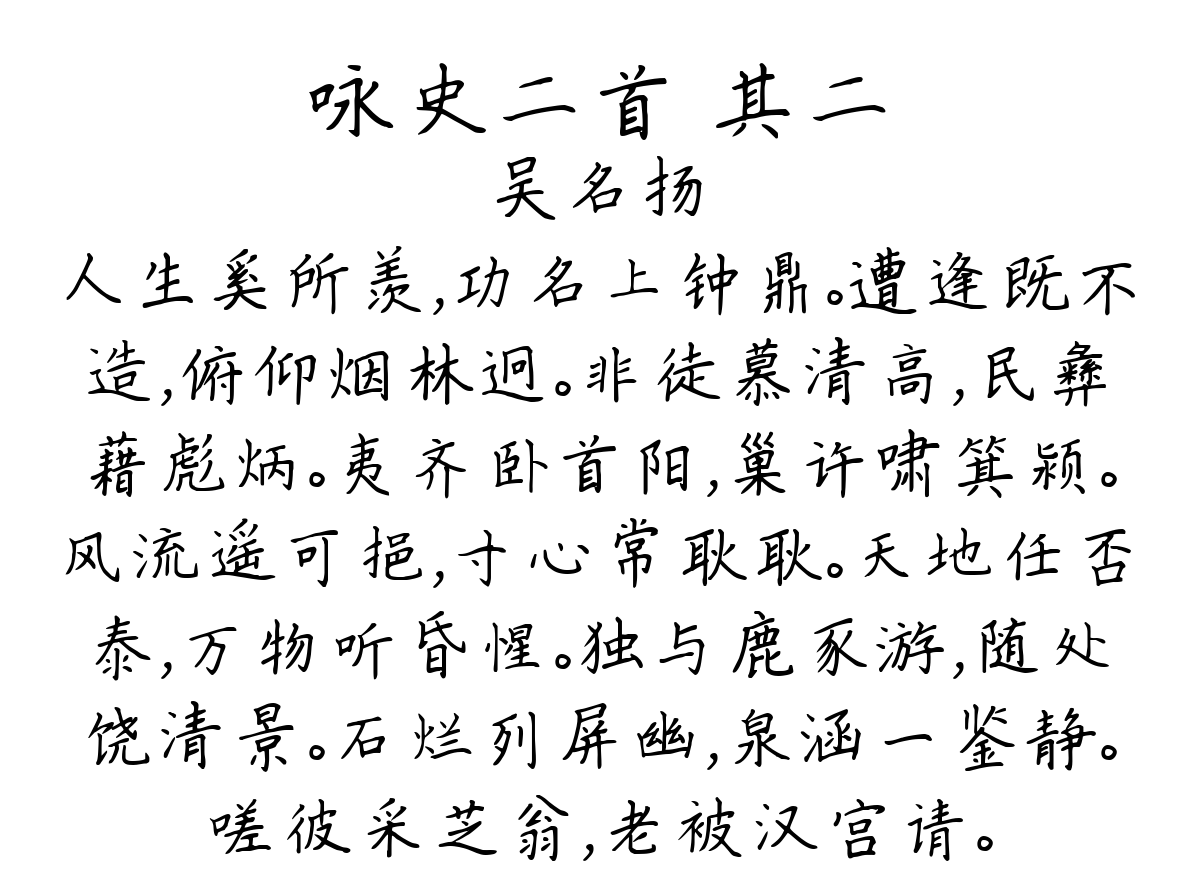 咏史二首 其二
吴名扬
人生奚所羡,功名上钟鼎。遭逢既不
造,俯仰烟林迥。非徒慕清高,民彝
藉彪炳。夷齐卧首阳,巢许啸箕颍。
风流遥可挹,寸心常耿耿。天地任否
泰,万物听昏惺。独与鹿豕游,随处
饶清景。石烂列屏幽,泉涵一鉴静。
嗟彼采芝翁,老被汉宫请。